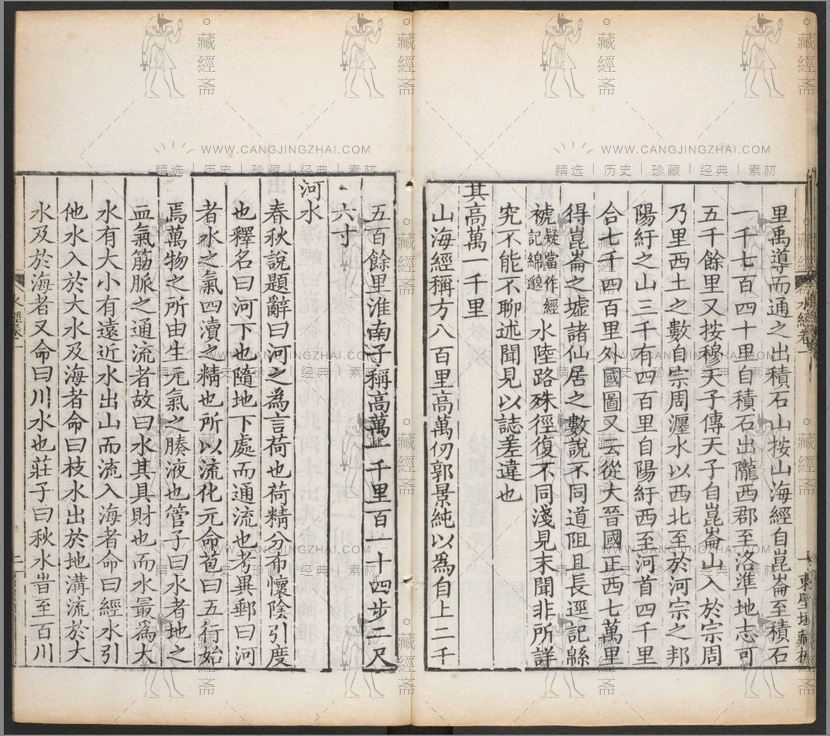 里禹導而通之出積石山按山海經自崑崙至積石
一千七百四十里自積石出隴西郡至洛準地志可
五千餘里又按穆天子傳天子自崑崙山入於宗周
乃里西土之數自宗周瀍水以西北至於河宗之邦
陽紆之山三千有四百里自陽紆西至河首四千里
合七千四百里外國圖又云從大晉國正西七萬里
得崑崙之墟諸仙居之數說不同道阻且長逕記緜
褫疑當作經記綿邈水陸路殊徑復不同淺見末聞非所詳
究不能不聊述聞見以誌差違也
其高萬一千里
山海經稱方八百里高萬仞郭景純以為自上二千
水經卷一
一
五百餘里淮南子稱高萬一千里百一十四步二尺
六寸
河水
春秋說題辭曰河之為言荷也荷精分布懷陰引度
也釋名曰河下也隨地下處而通流也考異郵曰河
者水之氣四瀆之精也所以流化元命苞曰五行始
焉萬物之所由生元氣之腠液也管子曰水者地之
血氣筋脈之通流者故曰水其具財也而水最為大
水有大小有遠近水出山而流入海者命曰經水引
他水入於大水及海者命曰枝水出於地溝流於大
水及於海者又命曰川水也莊子曰秋水旹至百川
水經卷一
二
藏經斋
WWW.CANGJINGZHAI.COM
精选|历史|珍藏|经典|素材